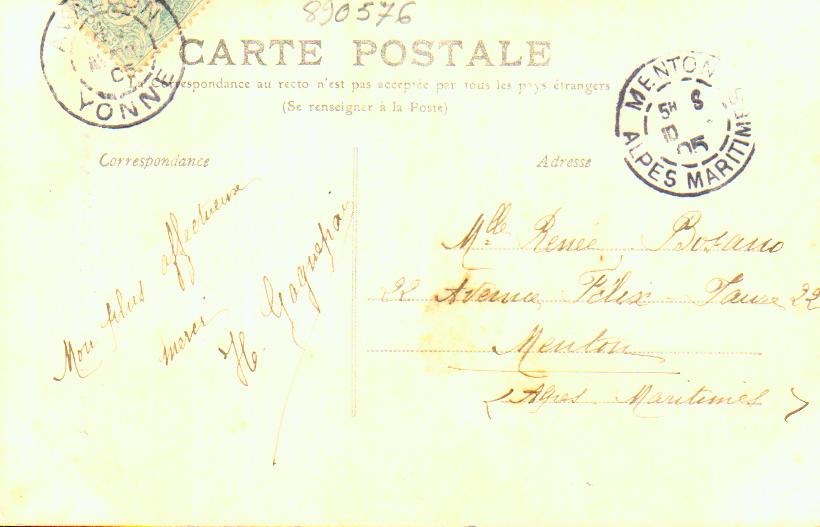 890576
CARTE POSTALE
Correspondance au recto n'est pas acceptée par tous les pays étrangers
(Se renseigner à la Poste)
YONNE
05
MENTON
5H 8
10
05
ALPES MARITIMES
Correspondance
Adresse
Mon plus affectueux
merci
H.
Mlle Renée Bosano
22 Avenue Félix - Faure 22
Menton
(Alpes Maritimes)